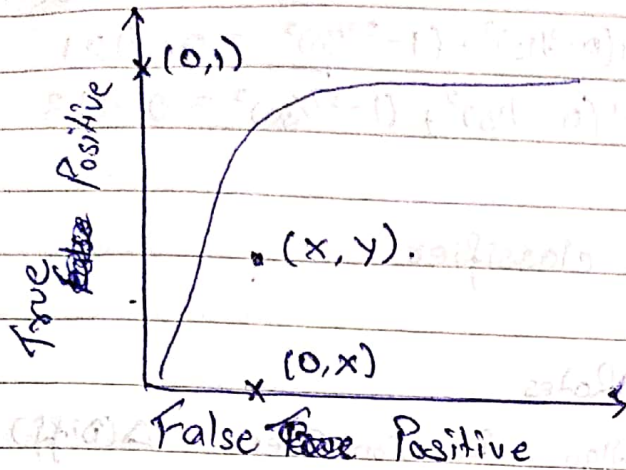 (0,1)
True Positive
(x, y).
(0,x)
False Positive